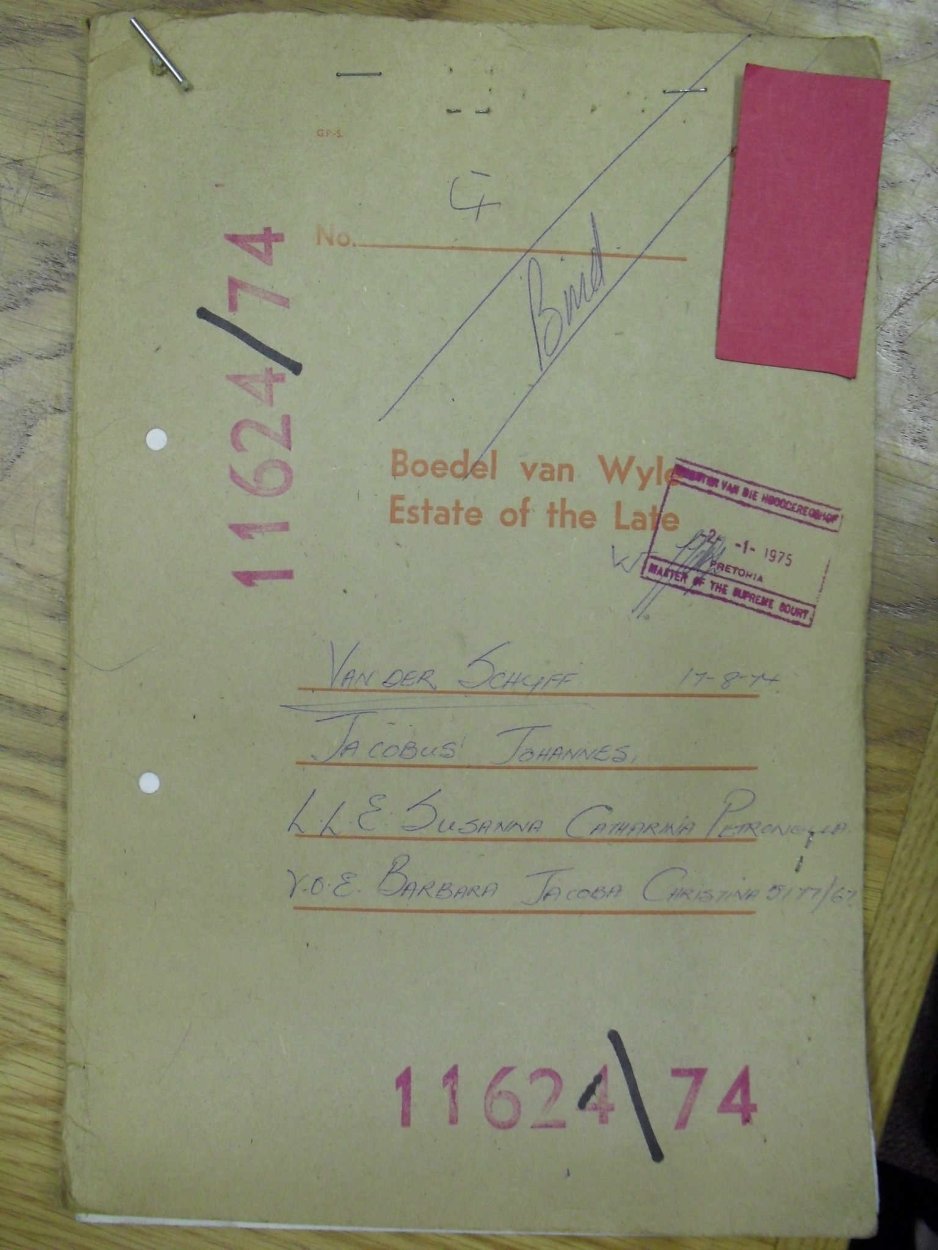 G.P.-S.
No.
Bind.
11624/74
Boedel van Wyle
Estate of the Late
MEESTER VAN DIE HOOGGEREGSHOF
-1- 1975
PRETORIA
MASTER OF THE SUPREME COURT
VAN DER SCHYFF 17-8-74
JACOBUS JOHANNES,
L.L.E. SUSANNA CATHARINA PETRONELLA
V.O.E. BARBARA JACOBA CHRISTINA 5177/67
11624/74